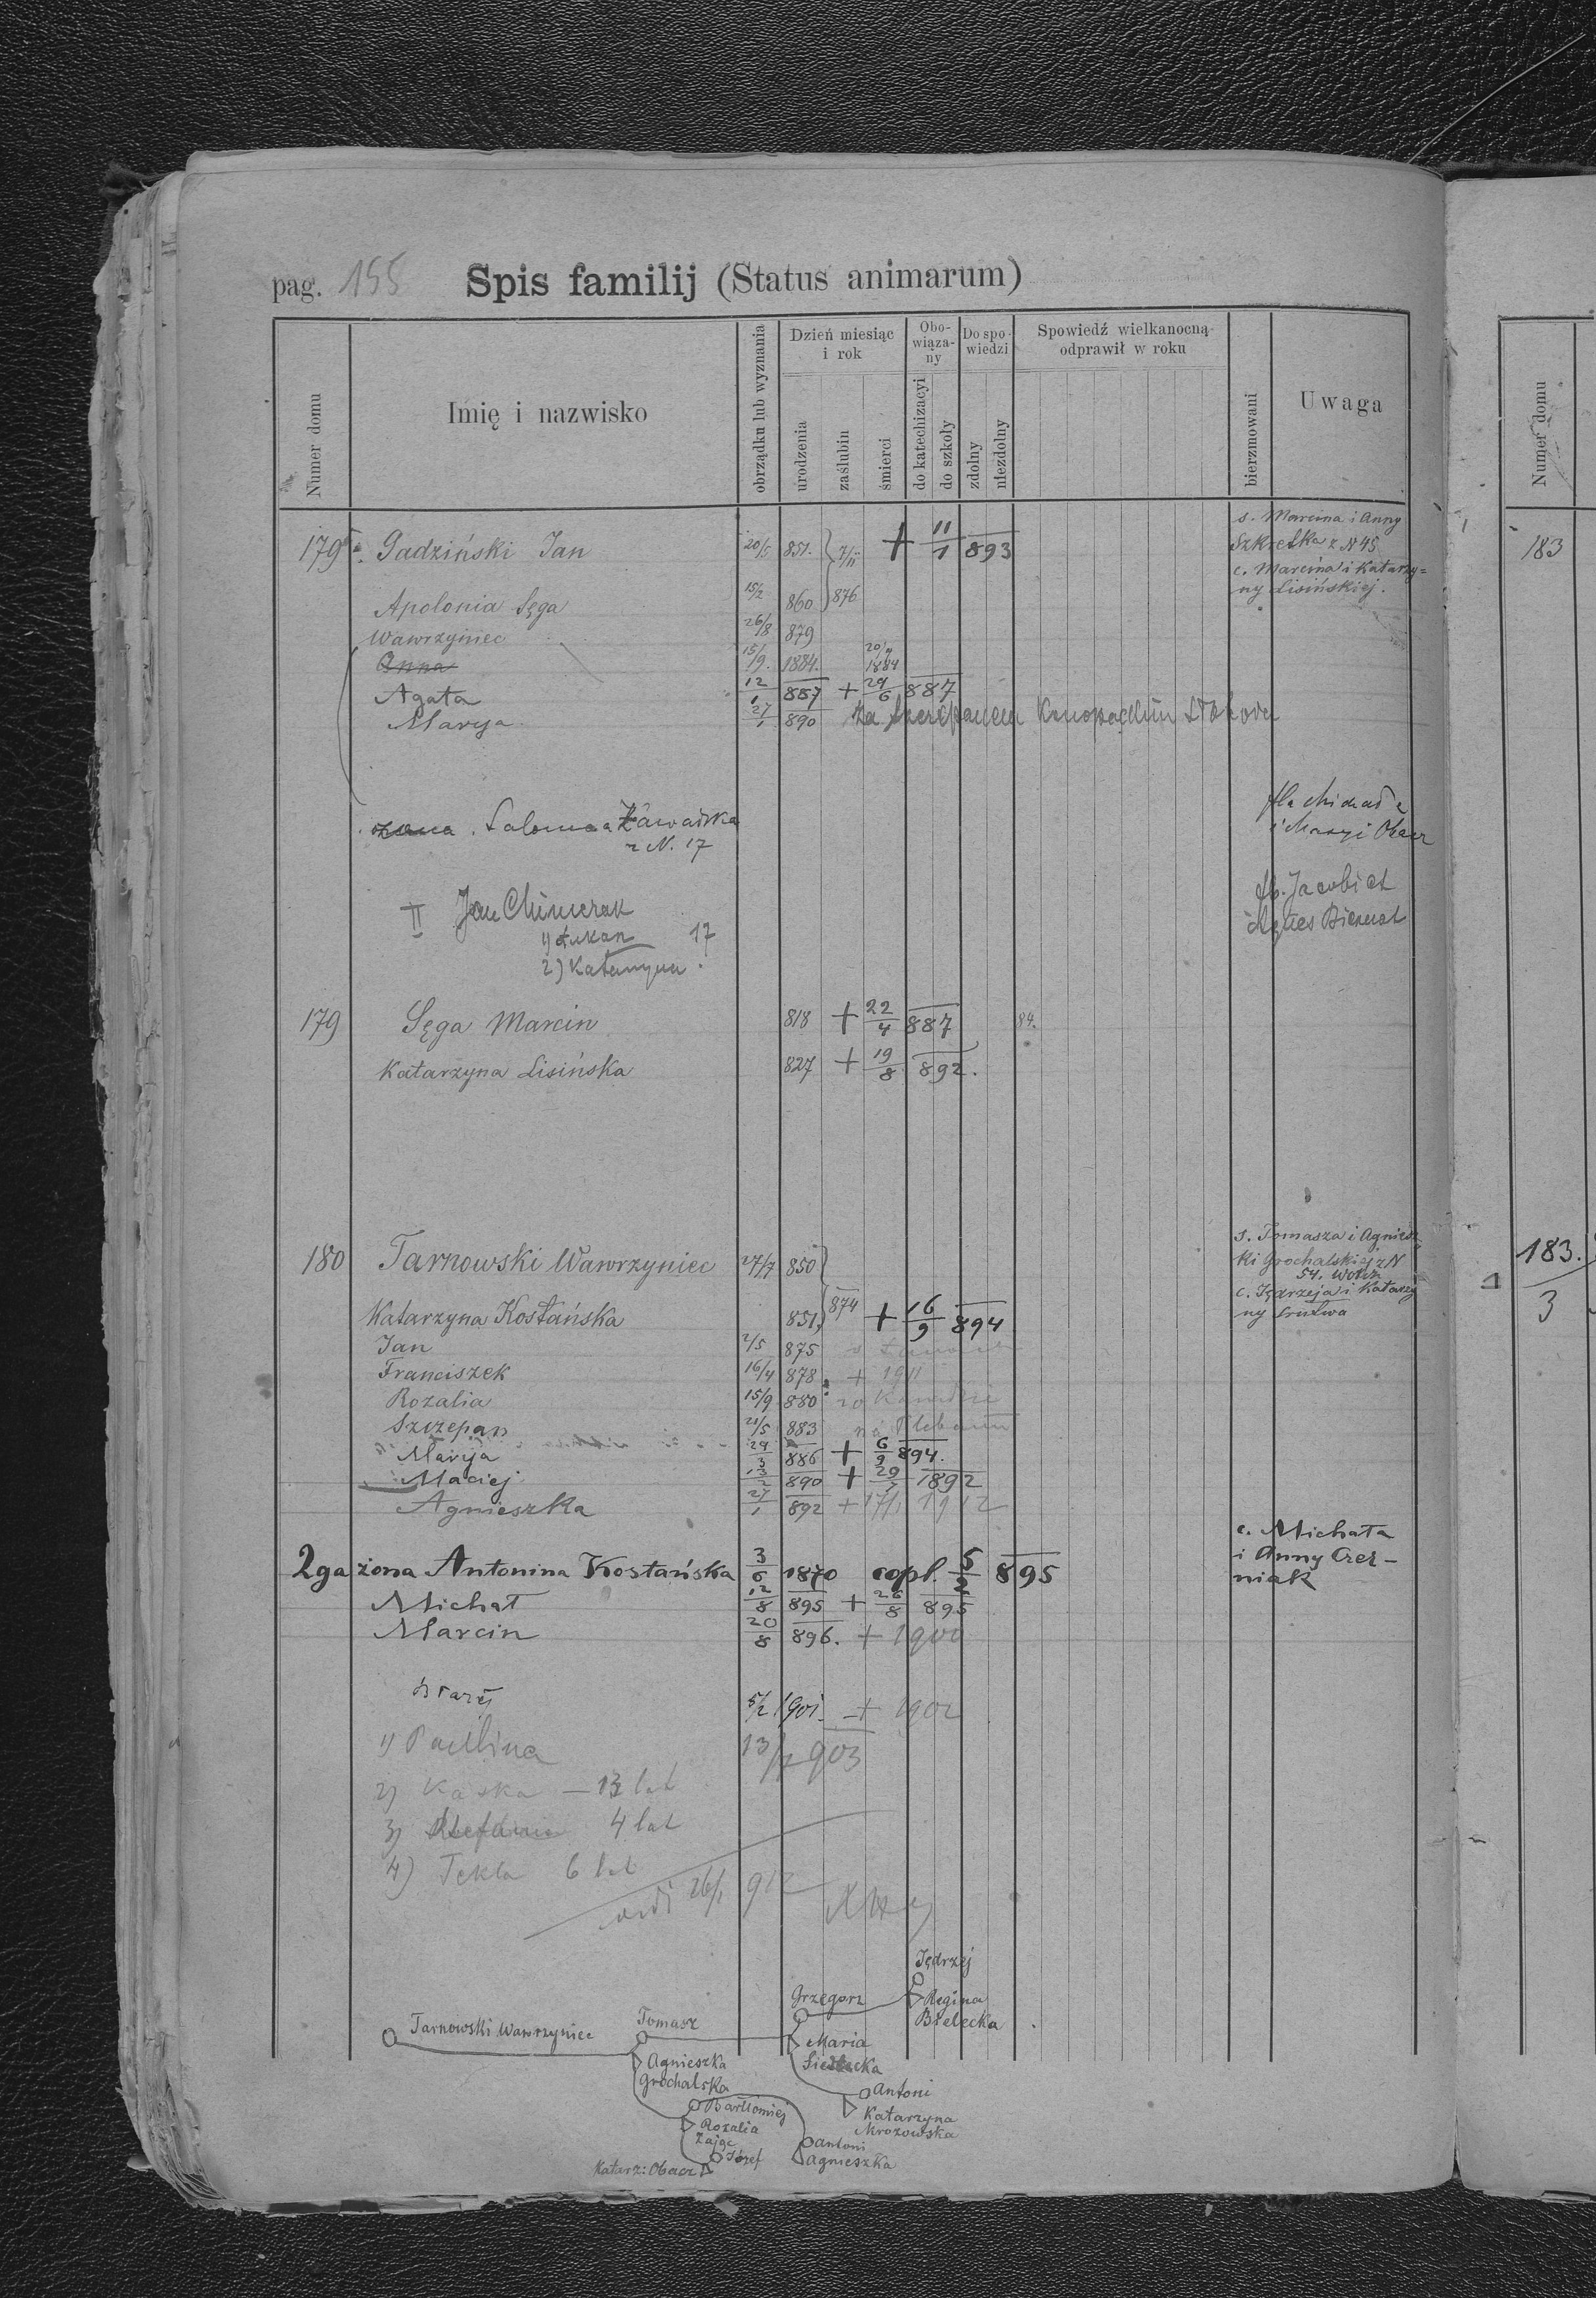 pag. 155 Spis familij (Status animarum)
Numer domu
Imię i nazwisko
obrządku lub wyznania
Dzień miesiąc i rok
urodzenia
zaślubin
śmierci
Obowiązany
do katechizacyi
do szkoły
Do spowiedzi
zdolny
niezdolny
Spowiedź wielkanocną odprawił w roku
bierzmowani
Uwaga
Numer domu
s. Marcina i Anny
179 Gadziński Jan 20/5 851. 7/11 + 11/1 893 Szkretka z N 45
c. Marcina i Katarzy=
Apolonia Sęga 15/2 860 876 ny Lisińskiej.
Wawrzyniec 26/8 879
Anna 15/9. 1884. 1884
Agata 12/1 887 + 29/6 887
Marya 27/1 890 za Szczepanem
Salomea Zawadzka
z N. 17
i Maryi Obacz
II Jan
17
2) Katarzyna
fil. Jacobi et
Agnes Biernat
179 Sęga Marcin 818 + 22/4 887 84.
Katarzyna Lisińska 827 + 19/8 892.
s. Tomasza i Agniesz
180 Tarnowski Wawrzyniec 27/7 850 ki Grochalskiej z N
54. Wolcz
c. Jędrzeja i Katarzy
Katarzyna Kostańska 851, 874 + 16/9 894 ny
Jan 2/5 875
Franciszek 16/4 878 + 1911
Rozalia 15/9 880
Szczepan 21/5 883
Marya 29/3 886 + 6/9 894.
Maciej 13/2 890 + 29/7 1892
Agnieszka 27/1 892 + 17/1 1912
c. Michała
2ga żona Antonina Kostańska 3/6 1870 copl. 5/2 895 i Anny Czer-
niak
Michał 12/8 895 + 26/8 895
Marcin 20/8 896. + 1900
5/2 1901. + 1902
1) Paulina 13/7 903
2) Kaska - 13 lat
3) Stefania 4 lat
4) Tekla 6 lat
vidi 26/1 912
Jędrzej
Regina
Bielecka
Grzegorz
Maria
Siedlecka
Tarnowski Wawrzyniec
Tomasz
Agnieszka
Grochalska
Antoni
Katarzyna
Mrozowska
Bartłomiej
Rozalia
Zając
Józef
Katarz: Obacz
Antoni
Agnieszka
183
183.
3